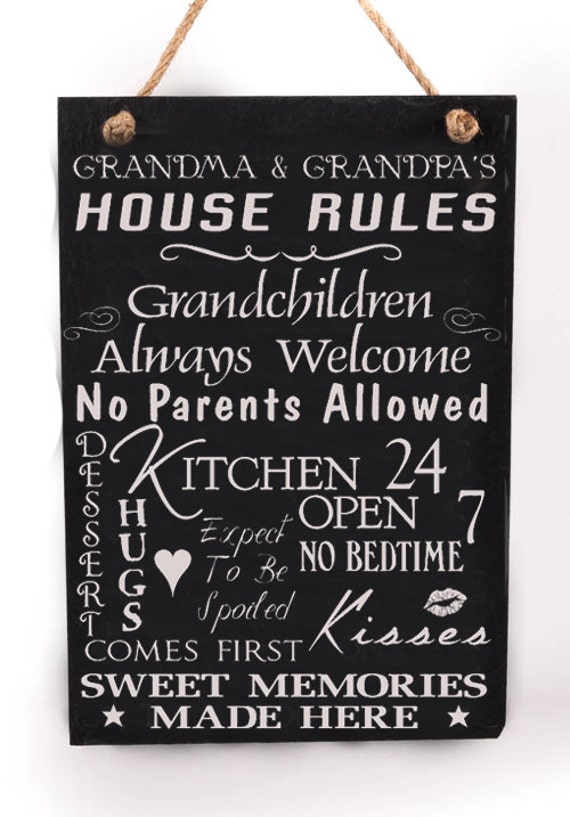 GRANDMA & GRANDPA'S
HOUSE RULES
Grandchildren
Always Welcome
No Parents Allowed
DESSERT
KITCHEN 24
OPEN 7
HUGS
Expect
To Be
Spoiled
NO BEDTIME
Kisses
COMES FIRST
SWEET MEMORIES
MADE HERE